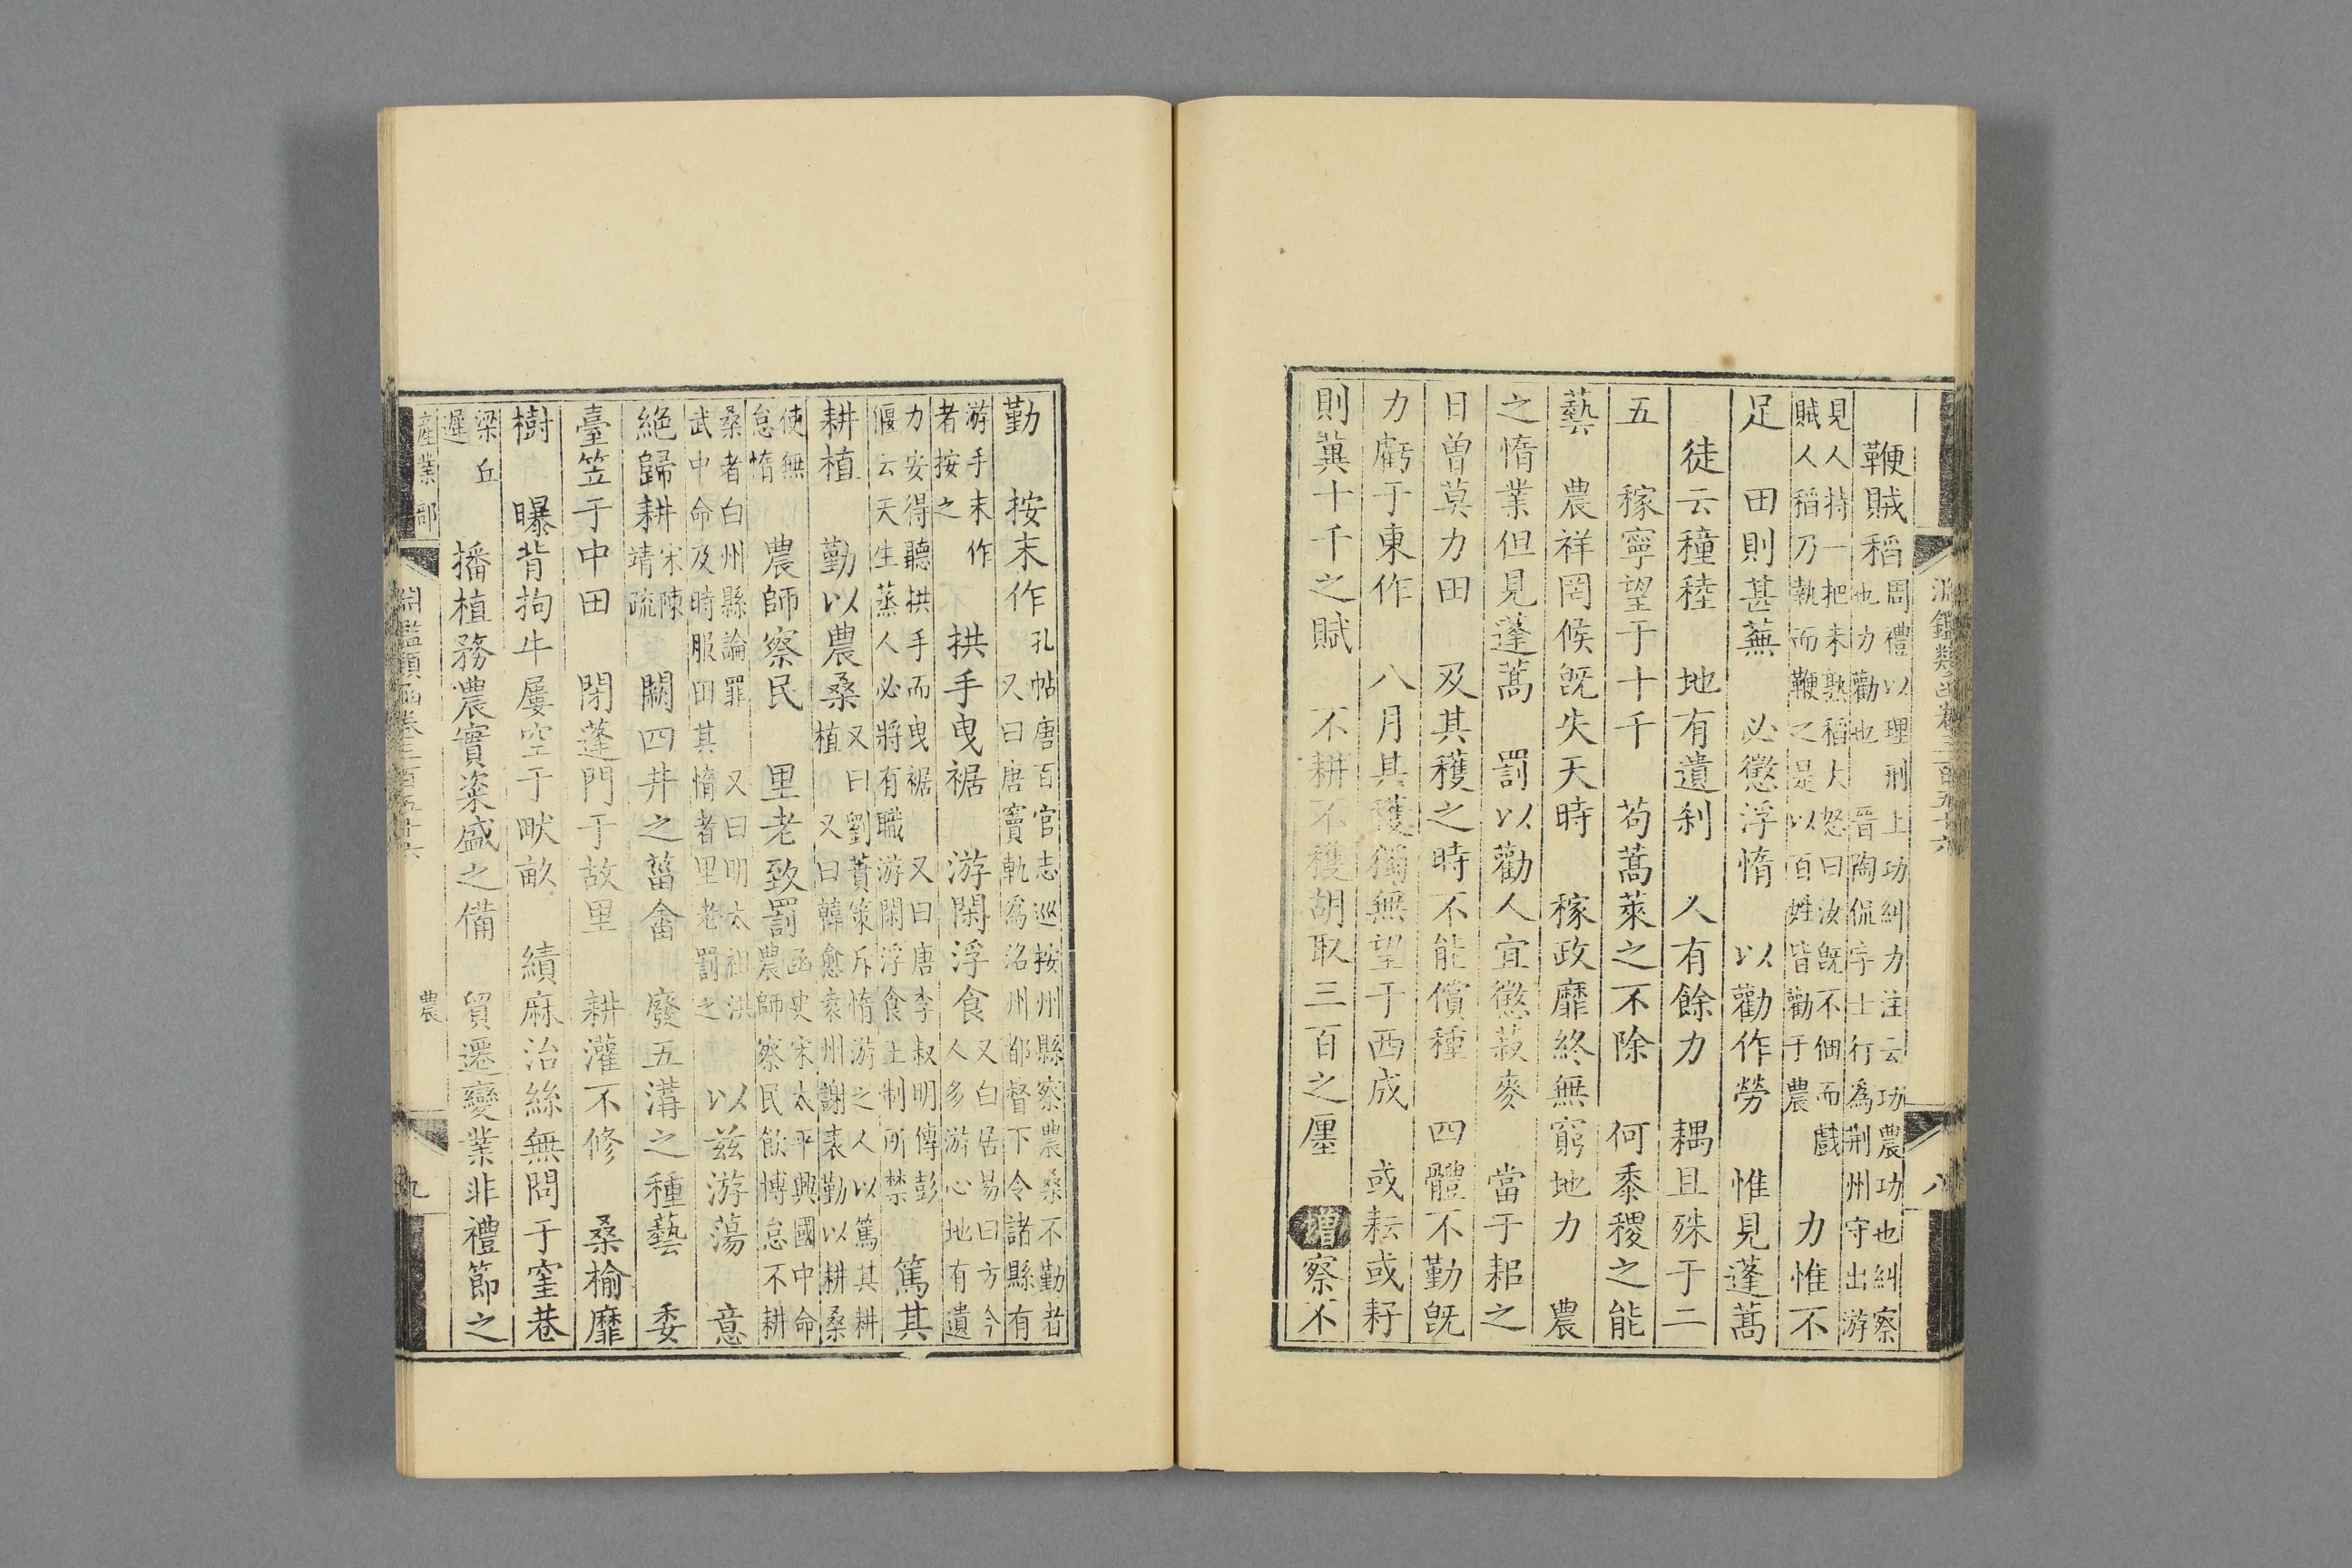 淵鑑類函卷三百五十六
八
鞭賊稻周禮以理刑上功糾力注云功農功也糾察
也力勸也 晉陶侃字士行爲荆州守出游
見人持一把未熟稻大怒曰汝既不佃而戲
賊人稻乃執而鞭之是以百姓皆勸于農
力惟不
足 田則甚蕪 必懲浮惰 以勸作勞 惟見蓬蒿
徒云穜稑 地有遺利 人有餘力 耦且殊于二
五 稼寧望于十千 茍蒿萊之不除 何黍稷之能
藝 農祥罔候旣失天時 稼政靡終無窮地力 農
之惰業但見蓬蒿 罰以勸人宜懲菽麥 當于耜之
日曾莫力田 及其穫之時不能償種 四體不勤旣
力虧于東作 八月其穫獨無望于西成 或耘或耔
則冀十千之賦 不耕不穫胡取三百之廛 增察不
勤 按末作孔帖唐百官志巡按州縣察農桑不勤者
又曰唐竇軌爲洛州都督下令諸縣有
游手末作
者按之
拱手曳裾 游閑浮食又白居易曰方今
人多游心地有遺
力安得聽拱手而曳裾 又曰唐李叔明傳彭
偃云天生蒸人必將有職游閑浮食王制所禁
篤其
耕植 勤以農桑又曰劉蕡策斥惰游之人以篤其耕
植 又曰韓愈袁州謝表勤以耕桑
使無
怠惰
農師察民 里老致罰函史宋太平興國中命
農師察民飲博怠不耕
桑者白州縣論罪 又曰明太祖洪
武中命及時服田其惰者里老罰之
以兹游蕩 意
絶歸耕宋陳
靖疏
闕四井之菑畬 廢五溝之種藝 委
臺笠于中田 閉蓬門于故里 耕灌不修 桑榆靡
樹 曝背拘牛屢空于畎畝 績麻治絲無問于窐巷
梁丘
遲
播植務農實粢盛之備 貿遷變業非禮節之
產業部
淵鑑類函卷三百五十六
農
九